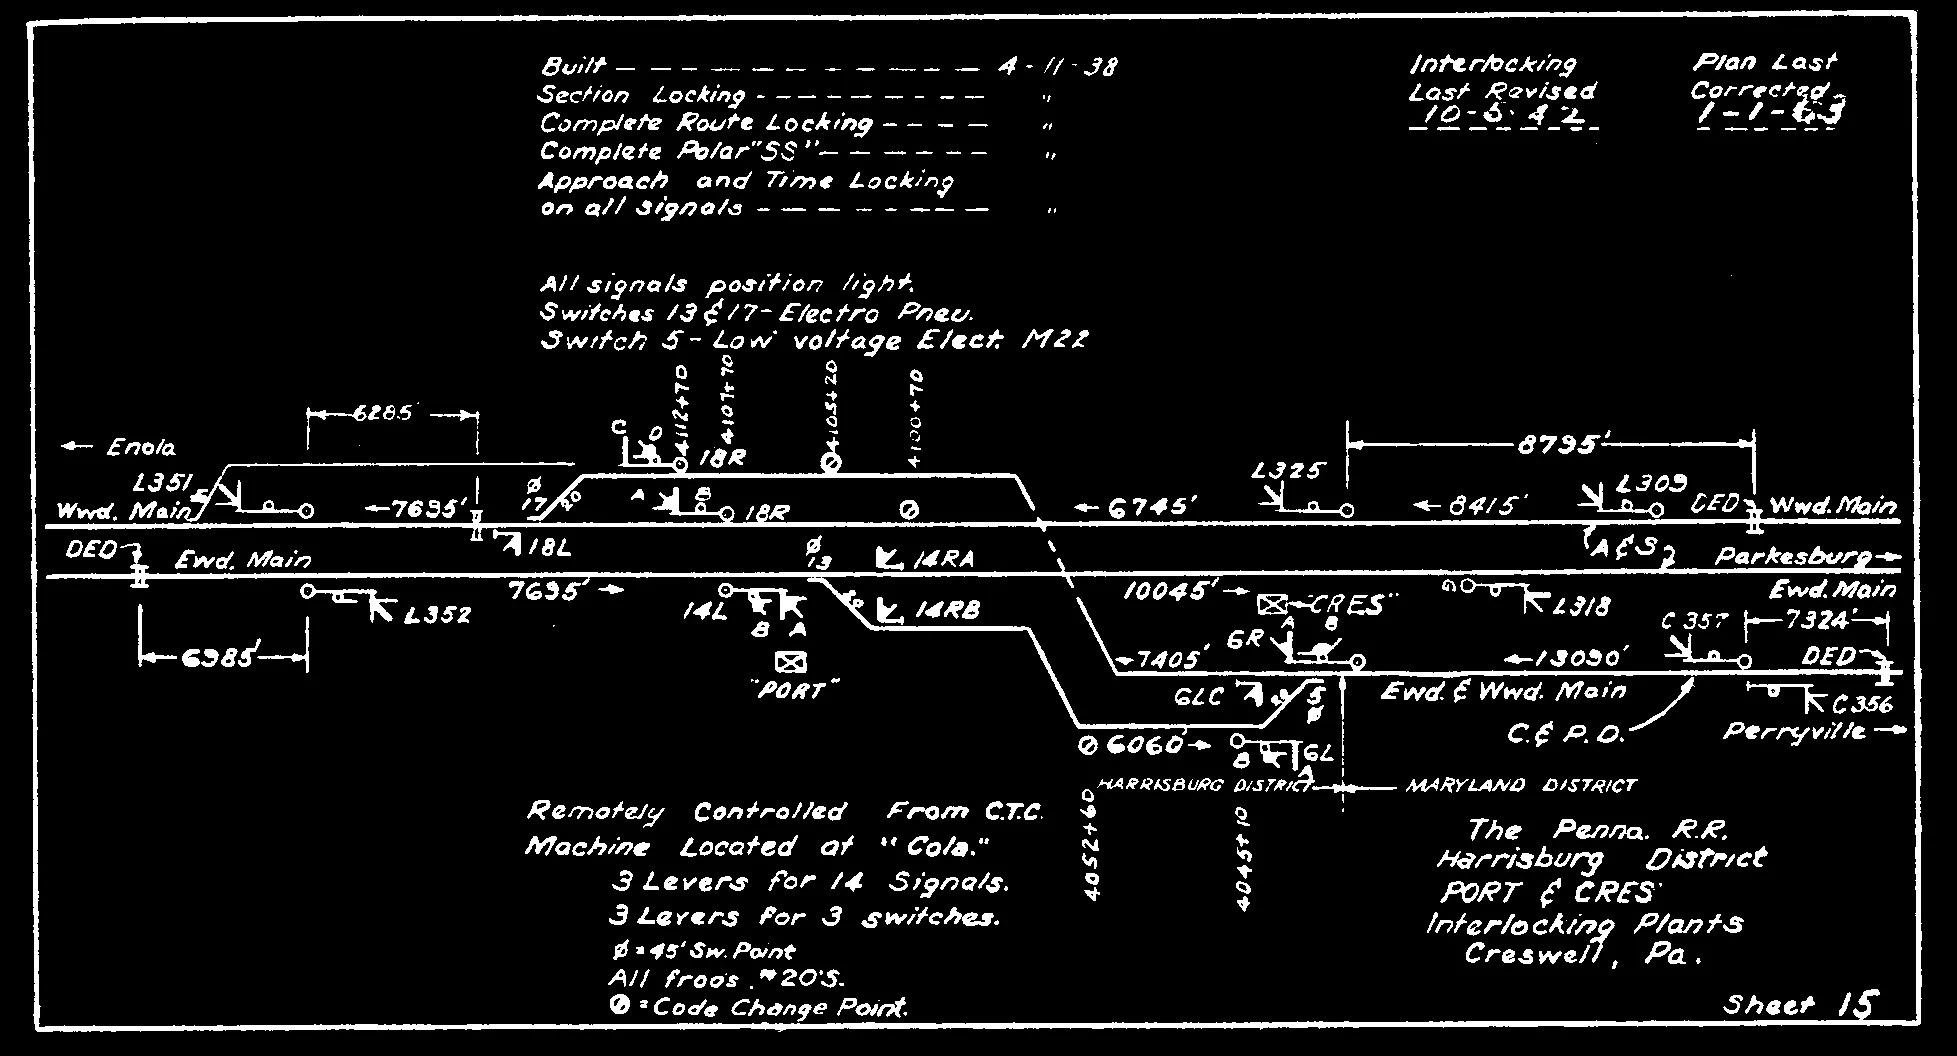 Built — — — — — — — — — — — 4-11-38
Section Locking - — — — — — — — "
Complete Route Locking — — — — "
Complete Polar "SS" — — — — — — "
Approach and Time Locking
on all signals — — — — — — — "
Interlocking
Last Revised
10-5-42
Plan Last
Corrected
1-1-63
All signals position light.
Switches 13 & 17 - Electro Pneu.
Switch 5 - Low voltage Elect. M22
4112+70
4107+70
4105+20
4100+70
6285'
← Enola
C D
18R
8795'
L351
Wwd. Main
←7695'
Ø
17
20
A B
18R
←6745'
L325
←8415'
L309
DED
Wwd. Main
DED
Ewd. Main
18L
Ø
13
14RA
A & S
Parkesburg →
7695' →
L352
14L
B A
14RB
10045' →
"CRES"
L318
Ewd. Main
6985'
"PORT"
←7405'
6R
A B
←13090'
C 357
7324'
DED
6LC
5
Ø
Ewd. & Wwd. Main
C356
6060' →
B
6L
A
C. & P. D.
Perryville →
HARRISBURG DISTRICT
MARYLAND DISTRICT
4052+60
4045+10
Remotely Controlled From C.T.C.
Machine Located at "Cola."
3 Levers for 14 Signals.
3 Levers for 3 switches.
Ø = 45' Sw. Point
All frogs #20'S.
⊘ = Code Change Point.
The Penna. R.R.
Harrisburg District
PORT & CRES
Interlocking Plants
Creswell, Pa.
Sheet 15